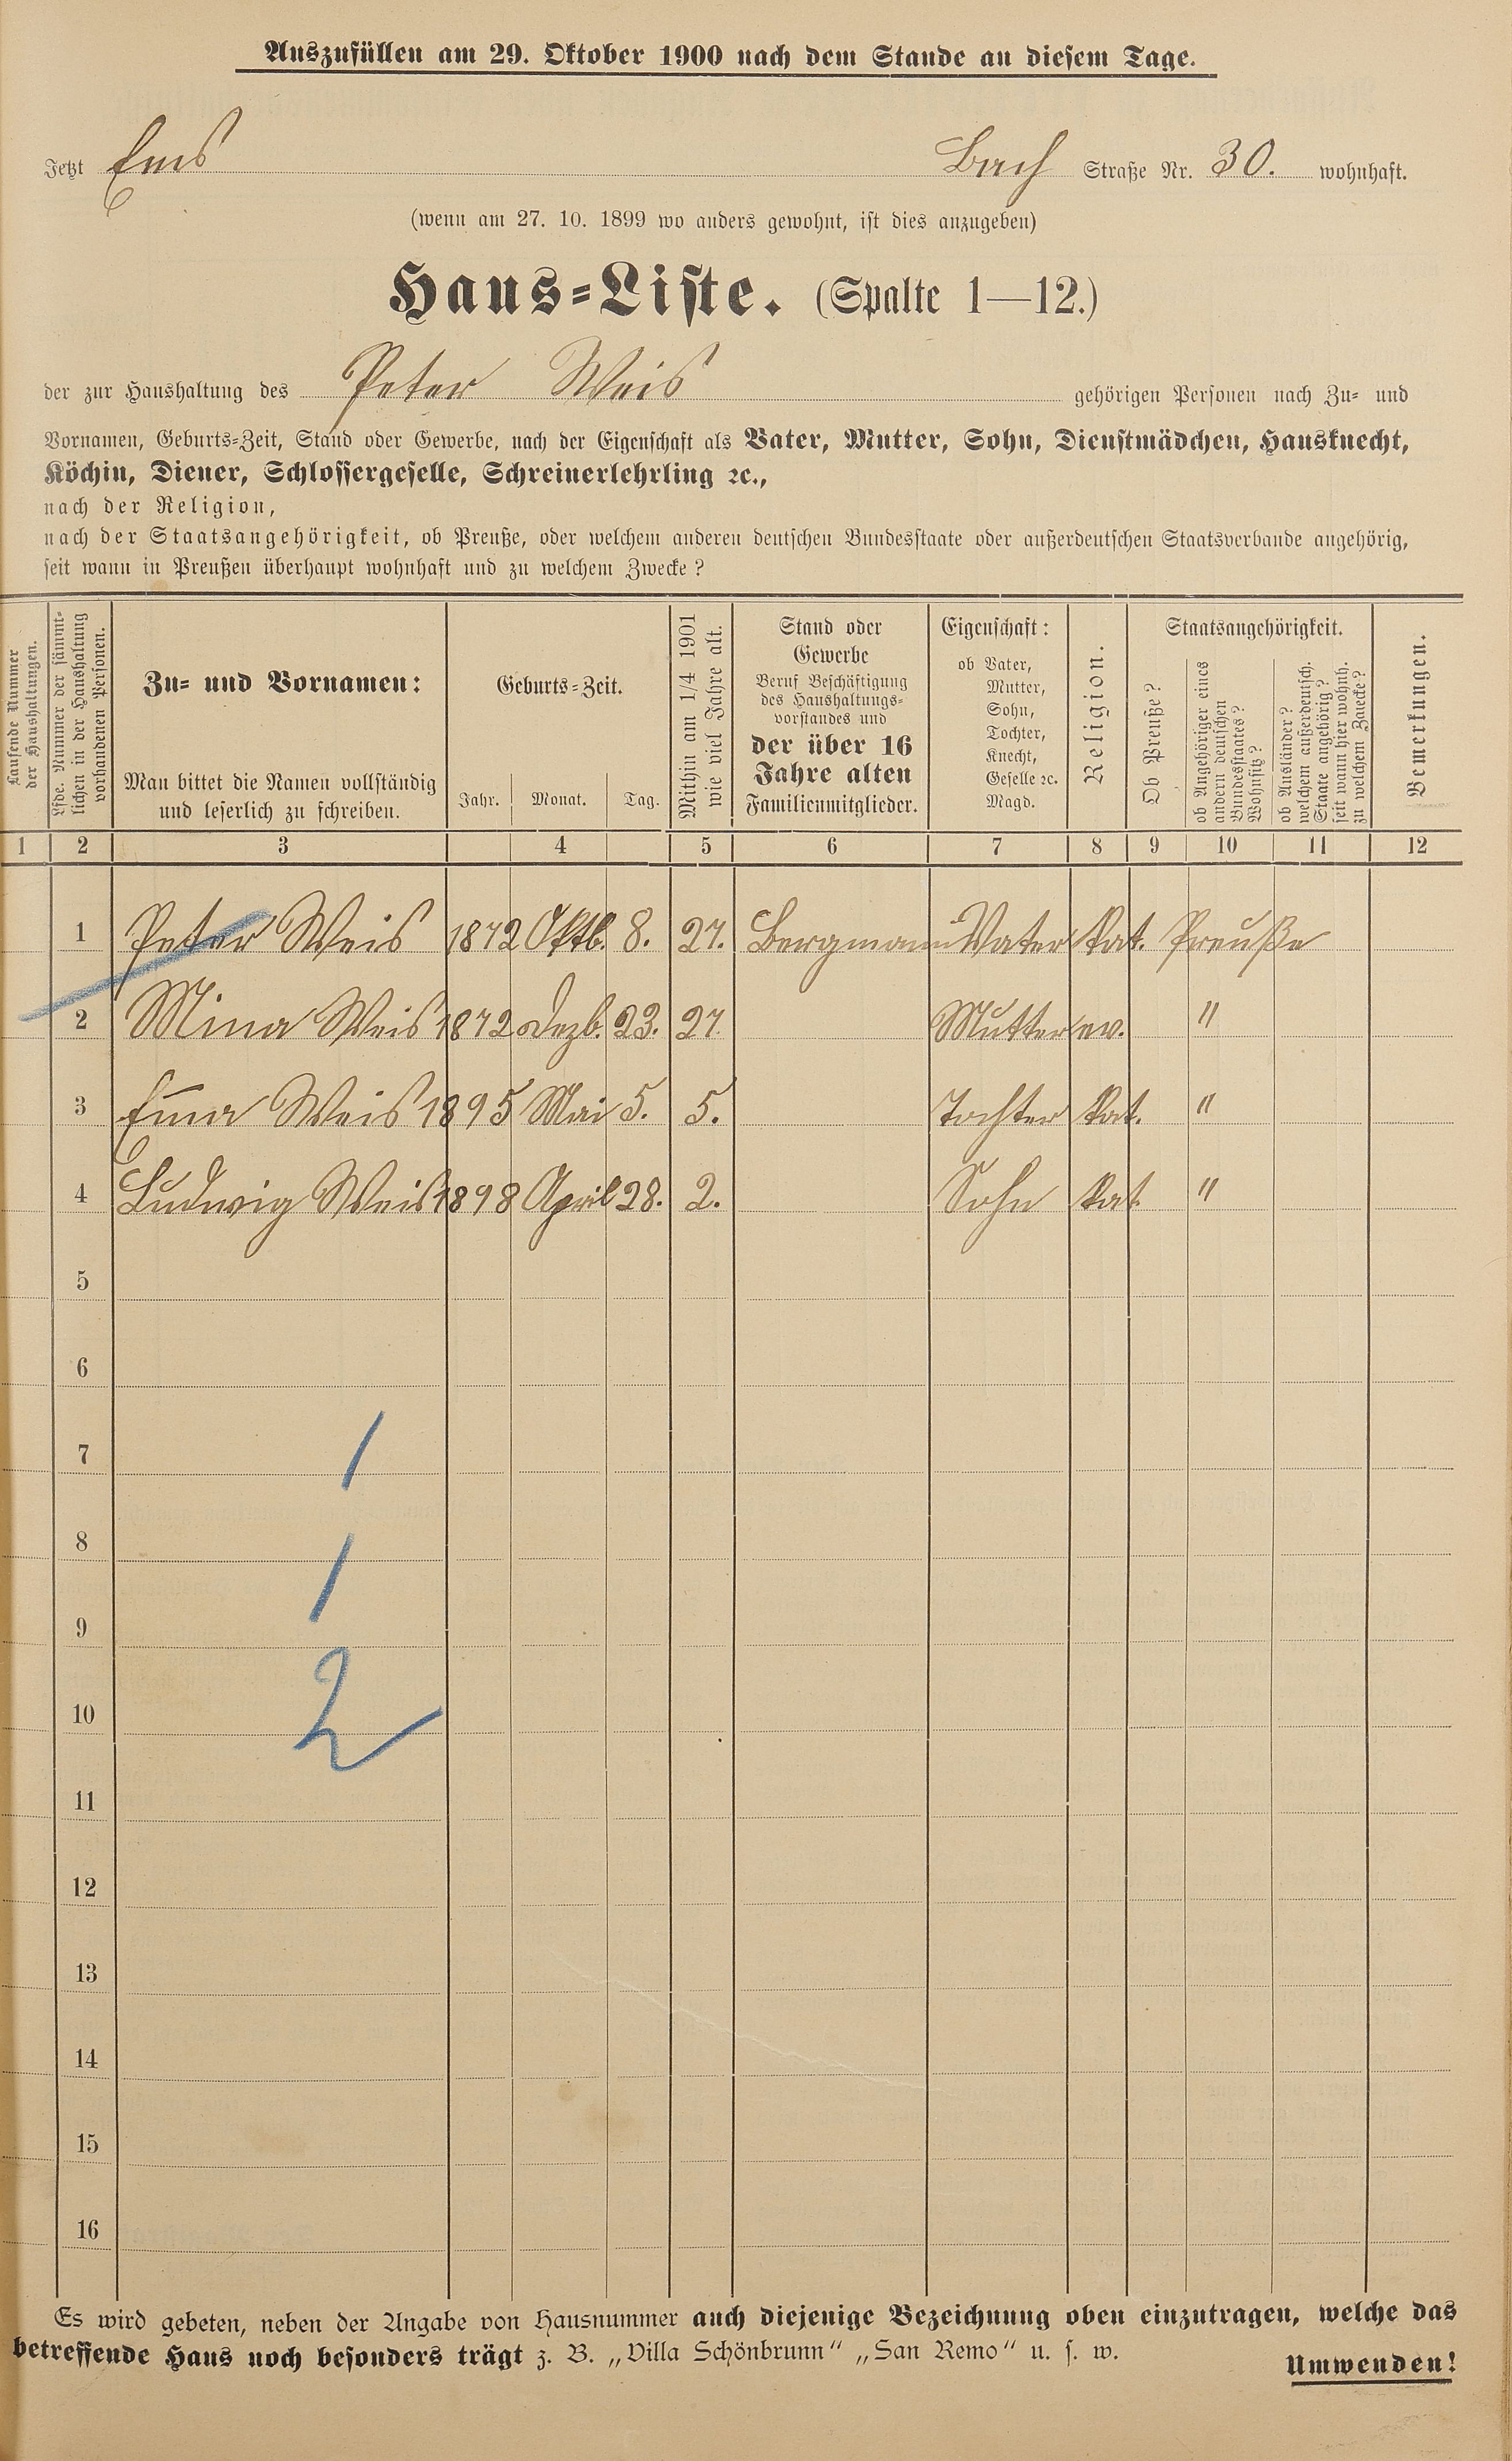 Auszufüllen am 29. Oktober 1900 nach dem Stande an diesem Tage.
Jetzt Ems Bach Straße Nr. 30. wohnhaft.
(wenn am 27. 10. 1899 wo anders gewohnt, ist dies anzugeben)
Haus-Liste. (Spalte 1—12.)
der zur Haushaltung des Peter Weis gehörigen Personen nach Zu- und
Vornamen, Geburts-Zeit, Stand oder Gewerbe, nach der Eigenschaft als Vater, Mutter, Sohn, Dienstmädchen, Hausknecht,
Köchin, Diener, Schlossergeselle, Schreinerlehrling ꝛc.,
nach der Religion,
nach der Staatsangehörigkeit, ob Preuße, oder welchem anderen deutschen Bundesstaate oder außerdeutschen Staatsverbande angehörig,
seit wann in Preußen überhaupt wohnhaft und zu welchem Zwecke?
Laufende Nummer
der Haushaltungen.
Lfde. Nummer der sämmt-
lichen in der Haushaltung
vorhandenen Personen.
Zu- und Vornamen:
Man bittet die Namen vollständig
und leserlich zu schreiben.
Geburts-Zeit.
Jahr. Monat. Tag.
Mithin am 1/4 1901
wie viel Jahre alt.
Stand oder
Gewerbe
Beruf Beschäftigung
des Haushaltungs-
vorstandes und
der über 16
Jahre alten
Familienmitglieder.
Eigenschaft:
ob Vater,
Mutter,
Sohn,
Tochter,
Knecht,
Geselle ꝛc.
Magd.
Religion.
Staatsangehörigkeit.
Ob Preuße?
ob Angehöriger eines
andern deutschen
Bundesstaates?
Wohnsitz?
ob Ausländer?
welchem außerdeutsch.
Staate angehörig?
seit wann hier wohnh.
zu welchem Zwecke?
Bemerkungen.
1 2 3 4 5 6 7 8 9 10 11 12
1 Peter Weis 1872 Oktb. 8. 27. Bergmann Vater kat. Preuße
2 Mina Weis 1872 Dezb. 23. 27. Mutter ev. "
3 Em̄a Weis 1895 Mai 5. 5. Tochter kat. "
4 Ludwig Weis 1898 April 28. 2. Sohn kat. "
5
6
7 1
8 1
9
10 2
11
12
13
14
15
16
Es wird gebeten, neben der Angabe von Hausnummer auch diejenige Bezeichnung oben einzutragen, welche das
betreffende Haus noch besonders trägt z. B. „Villa Schönbrunn" „San Remo" u. s. w.
Umwenden!